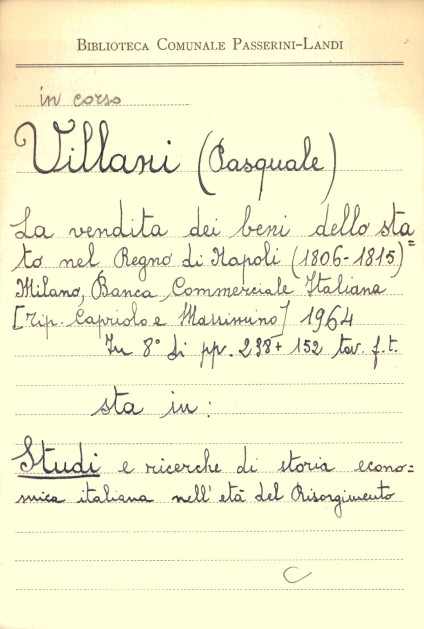 BIBLIOTECA COMUNALE PASSERINI-LANDI
in corso
Villani (Pasquale)
La vendita dei beni dello sta=
to nel Regno di Napoli (1806-1815)
Milano, Banca Commerciale Italiana
[tip. Capriolo e Massimino] 1964
In 8° di pp. 238+152 tav. f.t.
sta in:
Studi e ricerche di storia econo=
mica italiana nell'età del Risorgimento
C